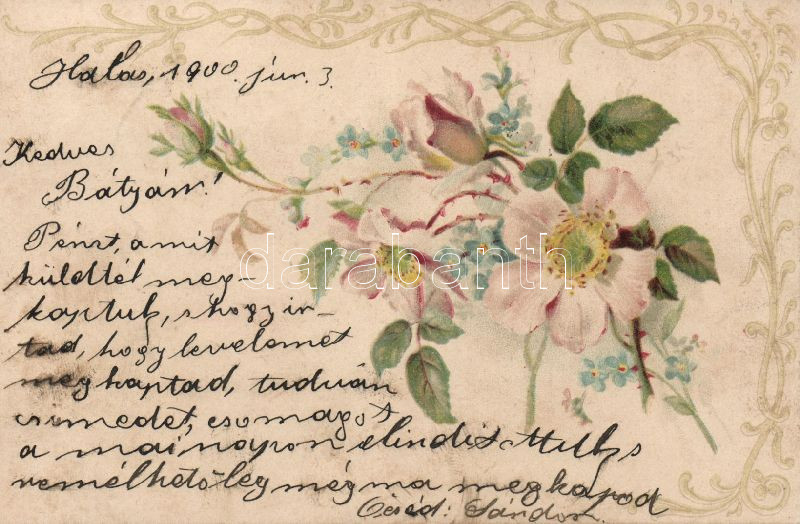 Halas, 1900. jun. 3.
Kedves
Bátyám!
Pénzt, amit
küldtél meg-
kaptuk, s hogy ir-
tad, hogy levelemet
megkaptad, tudván
cimedet, csomagot
a mai napon elindítottuk s
remélhetőleg még ma megkapod
Öcséd: Sándor.
darabanth